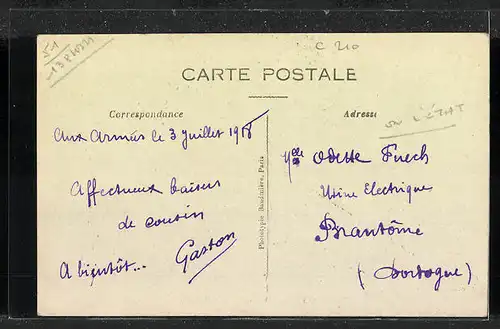 C 210
CARTE POSTALE
Correspondance
Adresse
en l'état
Aux Armées le 3 juillet 1918
Affectueux baisers
de cousin
Gaston
A bientôt...
Phototypie Baudinière, Paris
Mlle Odette Puech
Usine Electrique
Brantôme
(Dordogne)